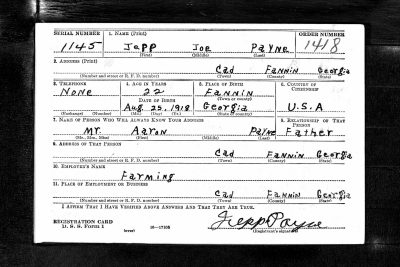 SERIAL NUMBER 1. NAME (Print) ORDER NUMBER
1145 Jepp Joe Payne 1418
(First) (Middle) (Last)
2. ADDRESS (Print)
Cad Fannin Georgia
(Number and street or R. F. D. number) (Town) (County) (State)
3. TELEPHONE 4. AGE IN YEARS 5. PLACE OF BIRTH 6. COUNTRY OF CITIZENSHIP
None 22 Fannin
DATE OF BIRTH (Town or county)
Aug. 25, 1918 Georgia U.S.A
(Exchange) (Number) (Mo.) (Day) (Yr.) (State or country)
7. NAME OF PERSON WHO WILL ALWAYS KNOW YOUR ADDRESS 8. RELATIONSHIP OF THAT PERSON
Mr. Aaron Payne Father
(Mr., Mrs., Miss) (First) (Middle) (Last)
9. ADDRESS OF THAT PERSON
Cad Fannin Georgia
(Number and street or R. F. D. number) (Town) (County) (State)
10. EMPLOYER'S NAME
Farming
11. PLACE OF EMPLOYMENT OR BUSINESS
Cad Fannin Georgia
(Number and street or R. F. D. number) (Town) (County) (State)
I AFFIRM THAT I HAVE VERIFIED ABOVE ANSWERS AND THAT THEY ARE TRUE.
REGISTRATION CARD Jepp Payne
D. S. S. Form 1 (over) 16-17105 (Registrant's signature)